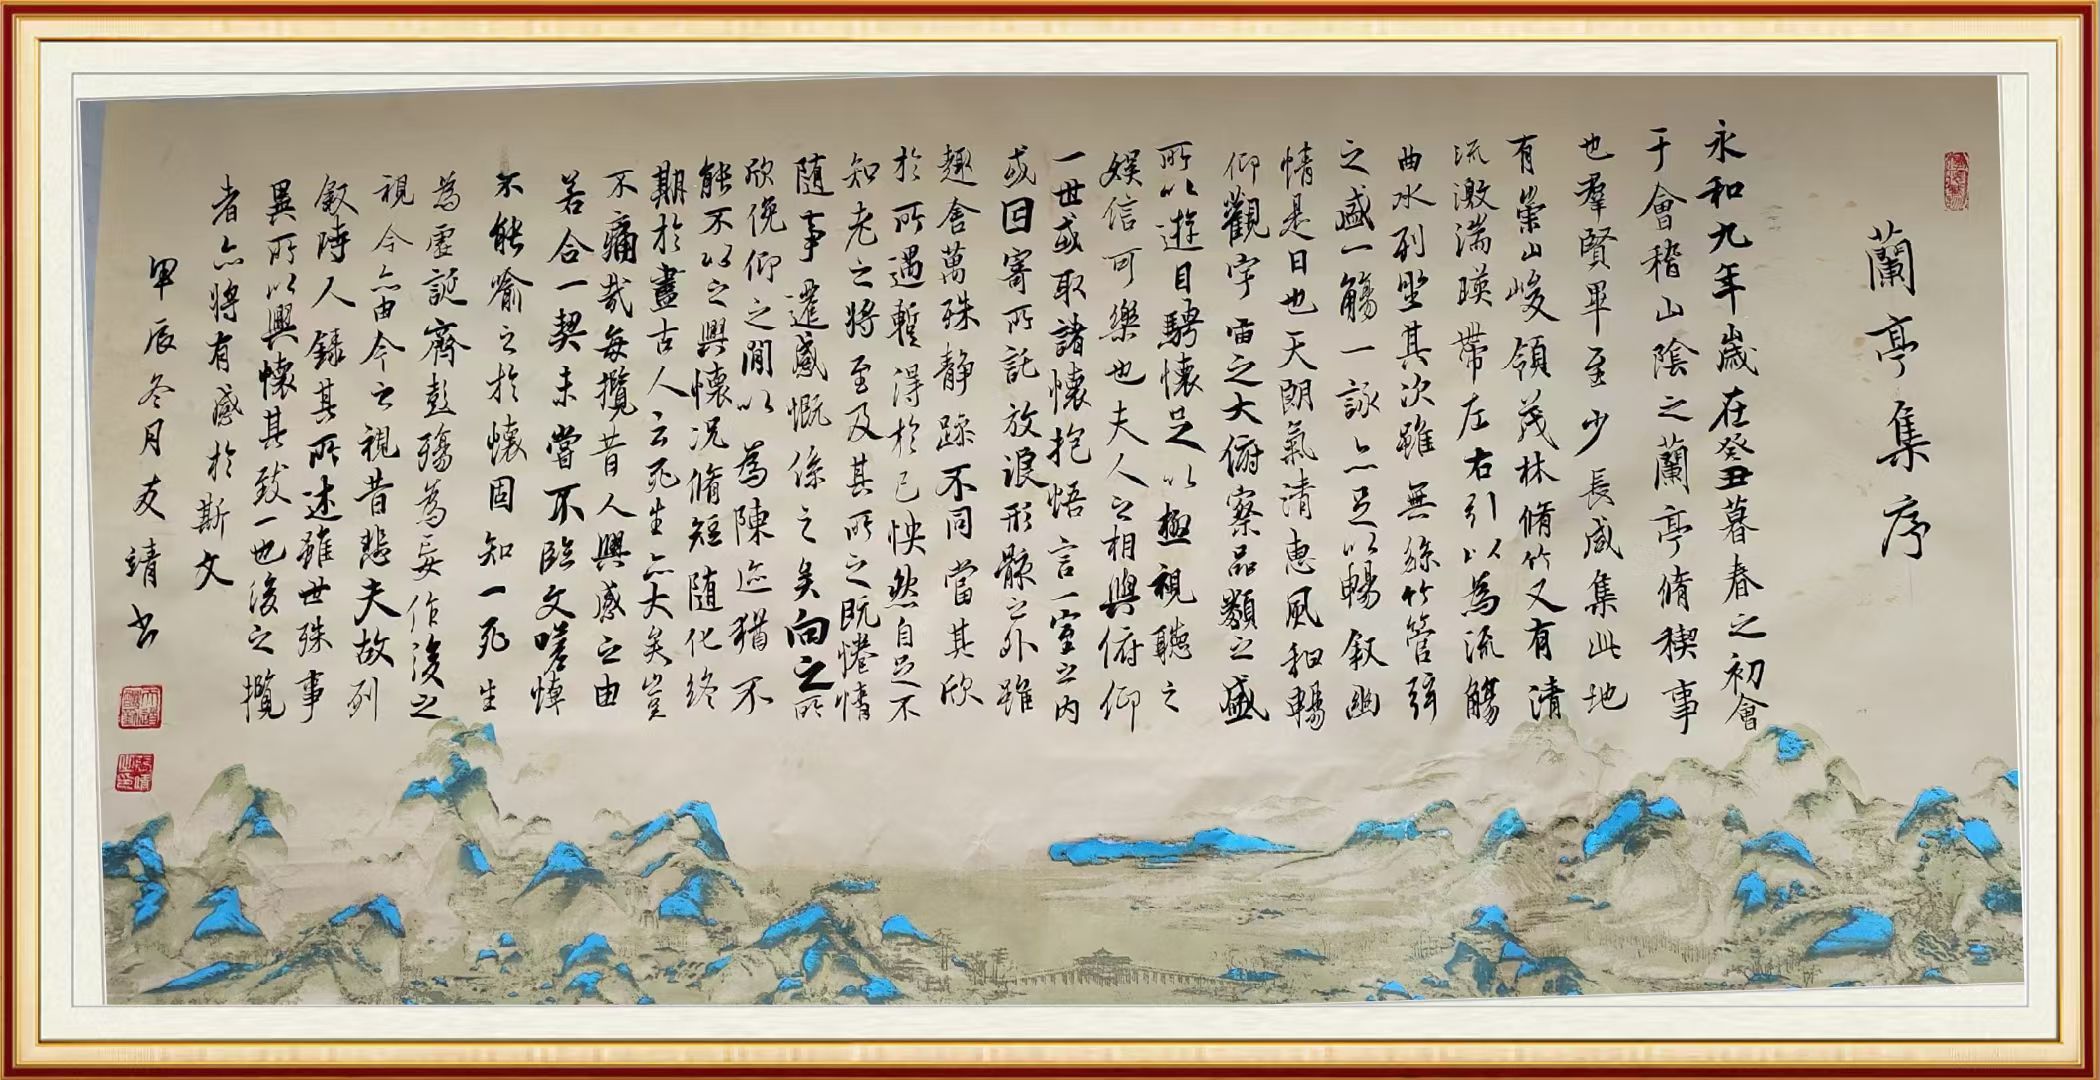 蘭亭集序
永和九年歲在癸丑暮春之初會
于會稽山陰之蘭亭脩稧事
也羣賢畢至少長咸集此地
有崇山峻領茂林脩竹又有清
流激湍暎帶左右引以為流觴
曲水列坐其次雖無絲竹管弦
之盛一觴一詠亦足以暢叙幽
情是日也天朗氣清惠風和暢
仰觀宇宙之大俯察品類之盛
所以遊目騁懷足以極視聽之
娛信可樂也夫人之相與俯仰
一世或取諸懷抱悟言一室之内
或因寄所託放浪形骸之外雖
趣舍萬殊静躁不同當其欣
於所遇暫得於己怏然自足不
知老之將至及其所之既惓情
随事遷感慨係之矣向之所
欣俛仰之閒以為陳迹猶不
能不以之興懷況脩短随化終
期於盡古人云死生亦大矣豈
不痛哉每攬昔人興感之由
若合一契未嘗不臨文嗟悼
不能喻之於懷固知一死生
為虛誕齊彭殤為妄作後之
視今亦由今之視昔悲夫故列
叙時人錄其所述雖世殊事
異所以興懷其致一也後之攬
者亦將有感於斯文
甲辰冬月友靖书